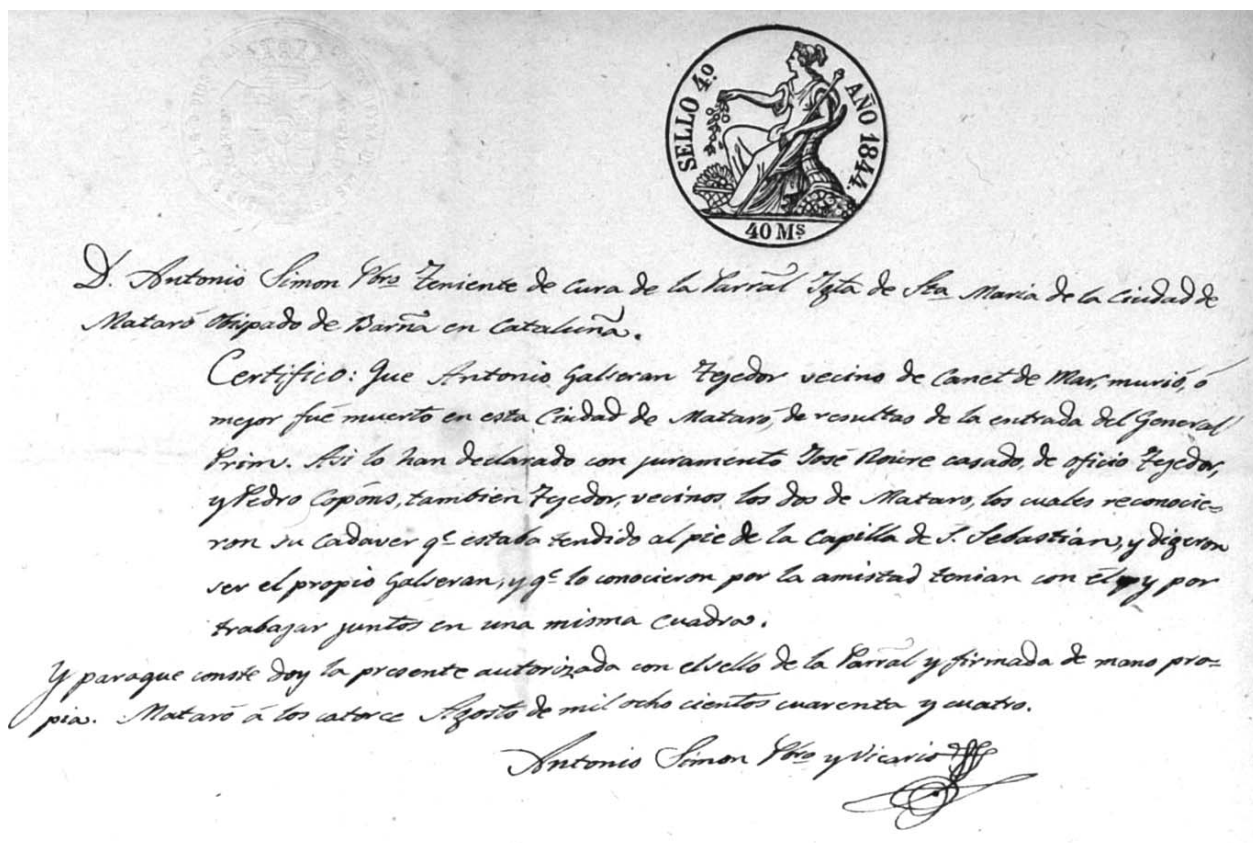 SELLO 4.º AÑO 1844.
40 Mˢ
D. Antonio Simon Pbro Teniente de Cura de la Parràl Igla de Sta Maria de la Ciudad de
Mataró Obispado de Barña en Cataluña.
Certifico: Que Antonio Galseran Tejedor vecino de Canet de Mar, murió, ó
mejor fué muerto en esta Ciudad de Mataró, de resultas de la entrada del General
Prim. Asi lo han declarado con juramento José Roure casado, de oficio Tejedor,
y Pedro Copons, tambien Tejedor, vecinos los dos de Mataro, los cuales reconocie=
ron su cadaver qᵉ estaba tendido al pie de la Capilla de S. Sebastian, y digeron
ser el propio Galseran, y qᵉ lo conocieron por la amistad tenian con él y por
trabajar juntos en una misma cuadra.
Y paraque conste doy la presente autorizada con el sello de la Parràl y firmada de mano pro=
pia. Mataró á los catorce Agosto de mil ocho cientos cuarenta y cuatro.
Antonio Simon Pbro y Vicario